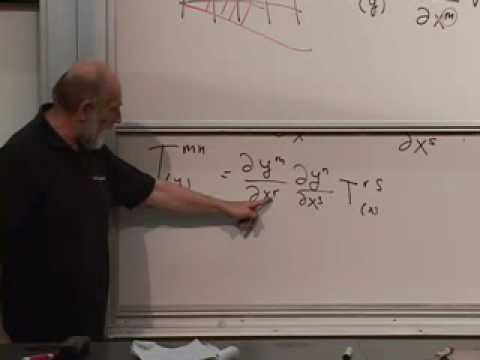 (y) ∂x^m
∂x^s
T^{mn}_{(y)} = ∂y^m/∂x^r ∂y^n/∂x^s T^{rs}_{(x)}